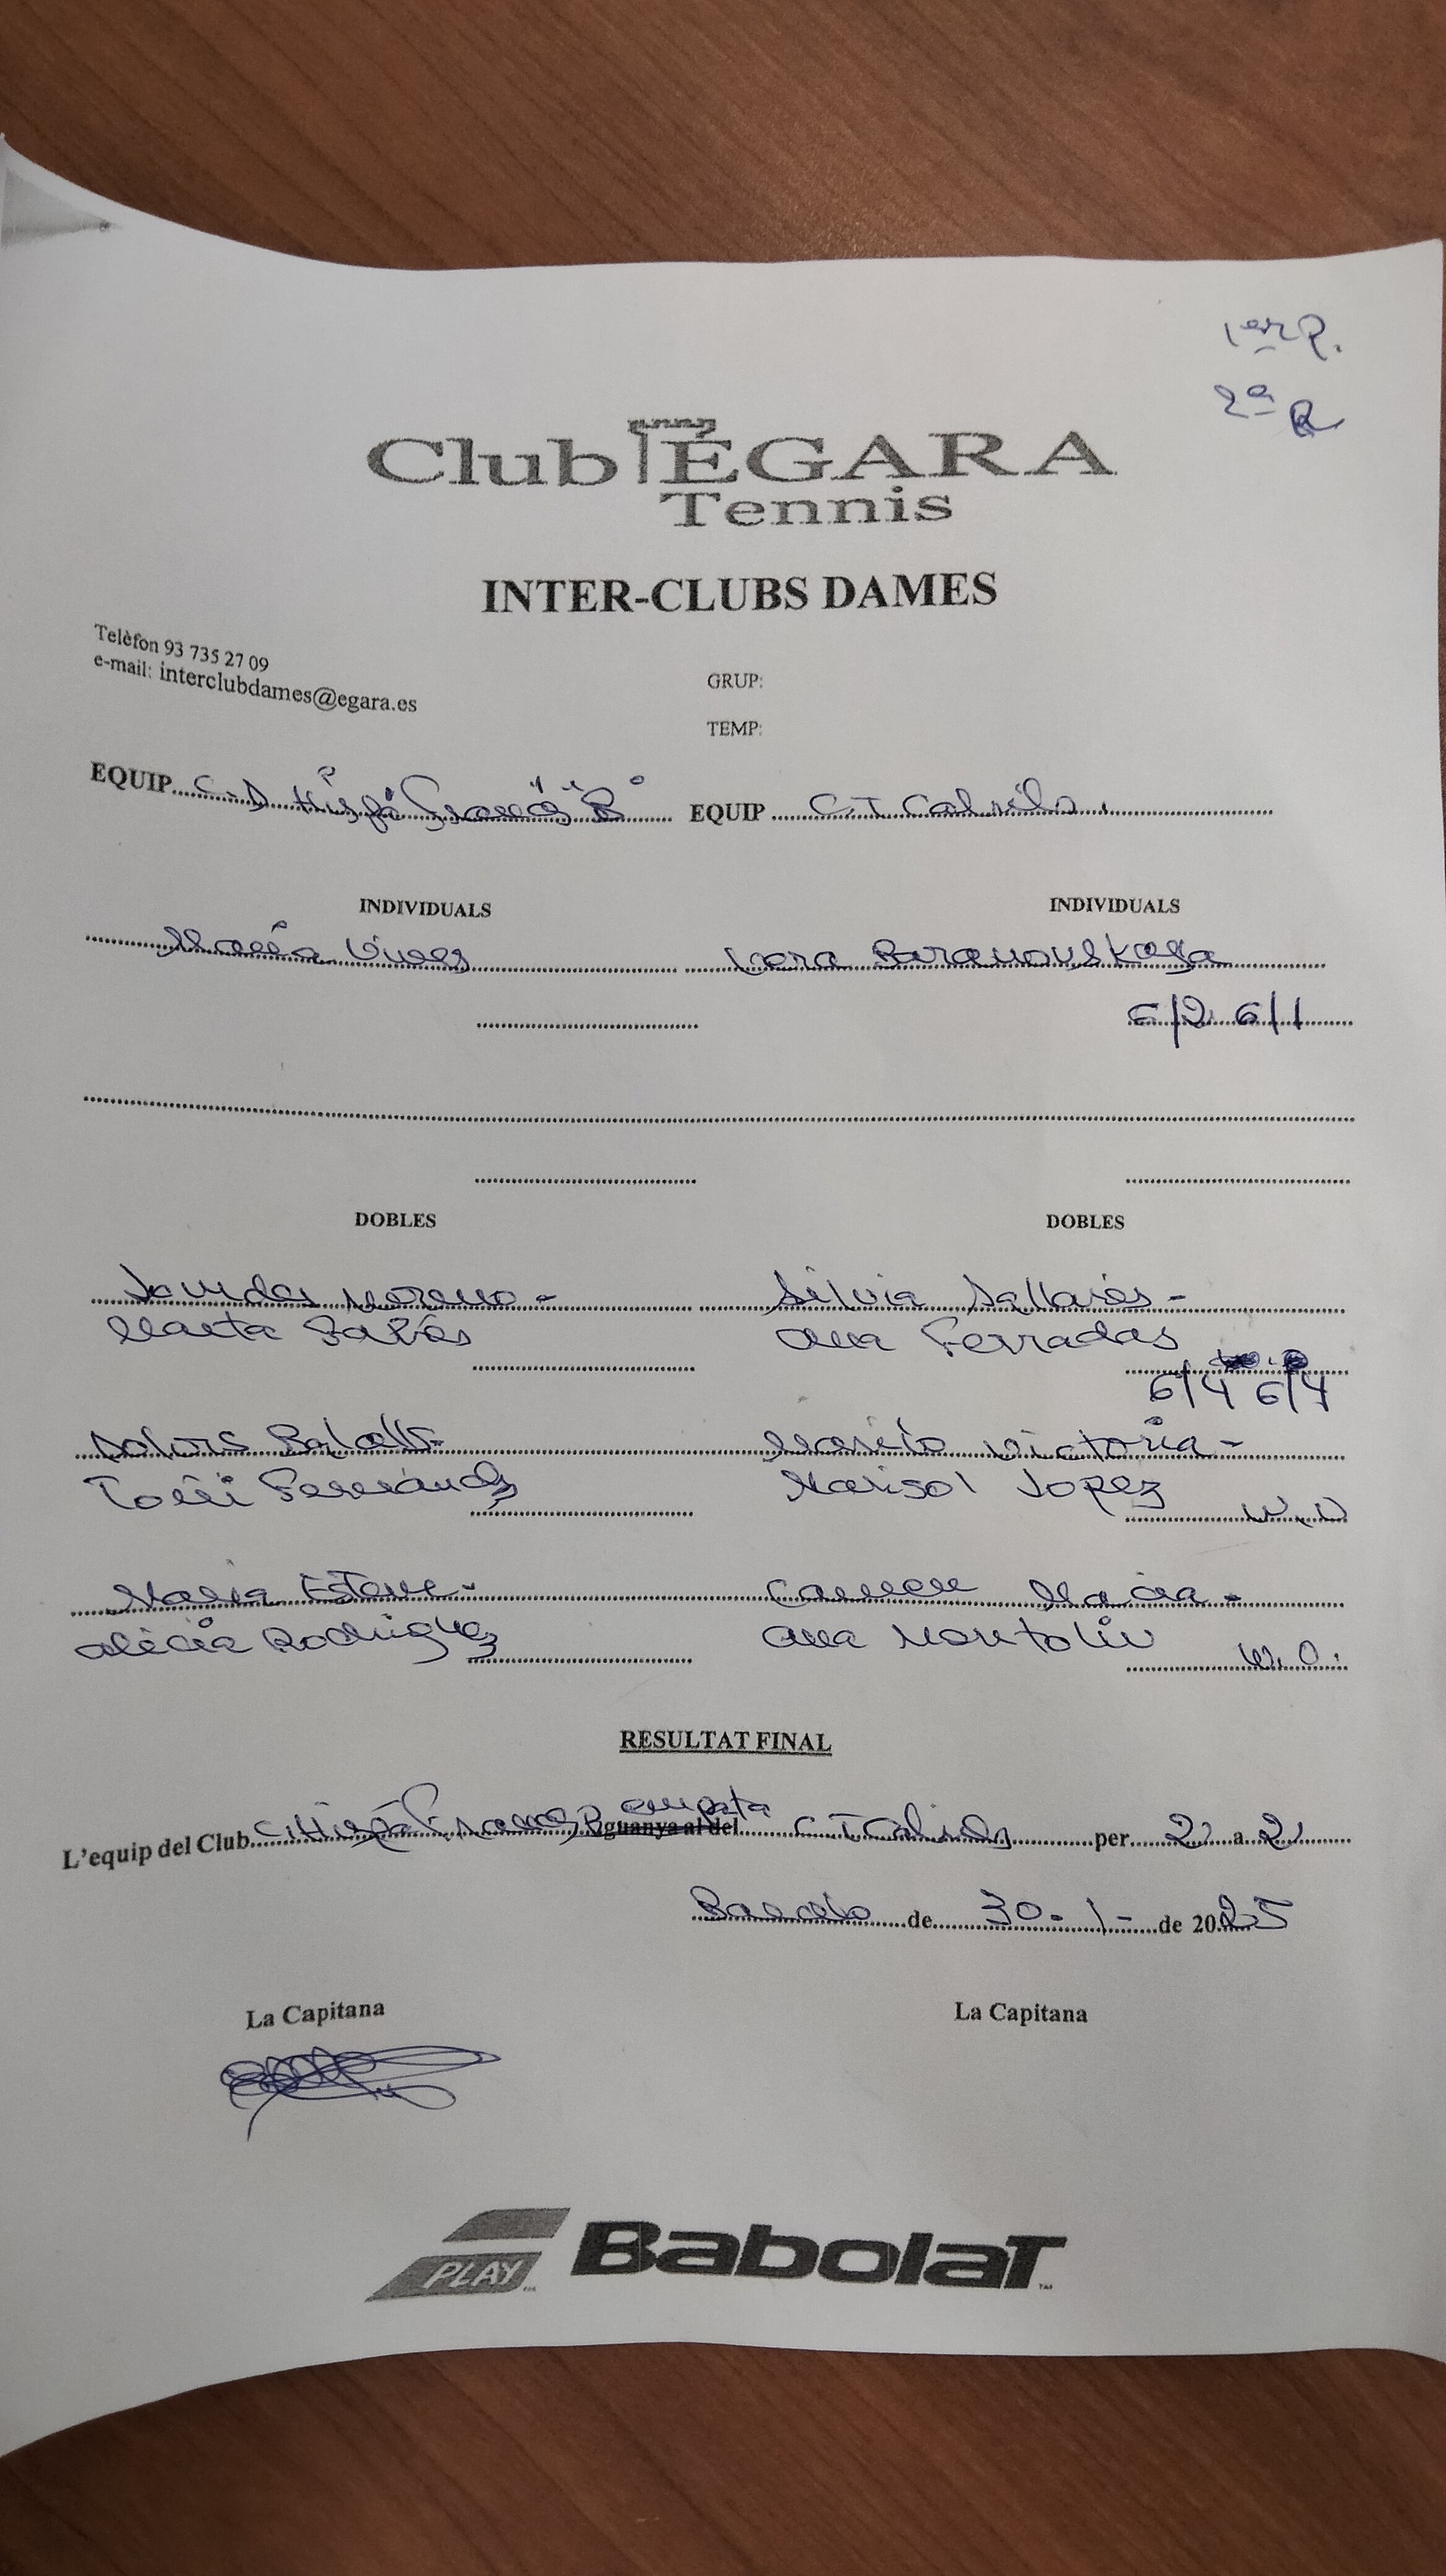 1er P.
2ª R
Club ÉGARA
Tennis
INTER-CLUBS DAMES
Telèfon 93 735 27 09
e-mail: interclubdames@egara.es
GRUP:
TEMP:
EQUIP C.D Hispà Francés "B" EQUIP C.T Cabrils.
INDIVIDUALS INDIVIDUALS
María Vives Vera Baranovskaya
6/2 6/1
DOBLES DOBLES
Lourdes Moreno - Silvia Sallarés -
Marta Ana Ferradas
6/4 6/4
Dolors - Victòria -
Toñi Fernández Marisol Lopez W.O
Maria Esteve - Carmen Macia -
Alicia Rodriguez Ana Montoliu W.O.
RESULTAT FINAL
L'equip del Club C. Hispà Francés B empata guanya al del C T Cabrils per 2 a 2
Barcelo de 30-1- de 2025
La Capitana La Capitana
PLAY Babolat